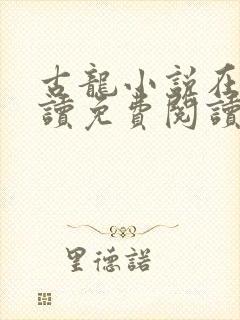 古龍小說在
讀免費閱讀
里德諾